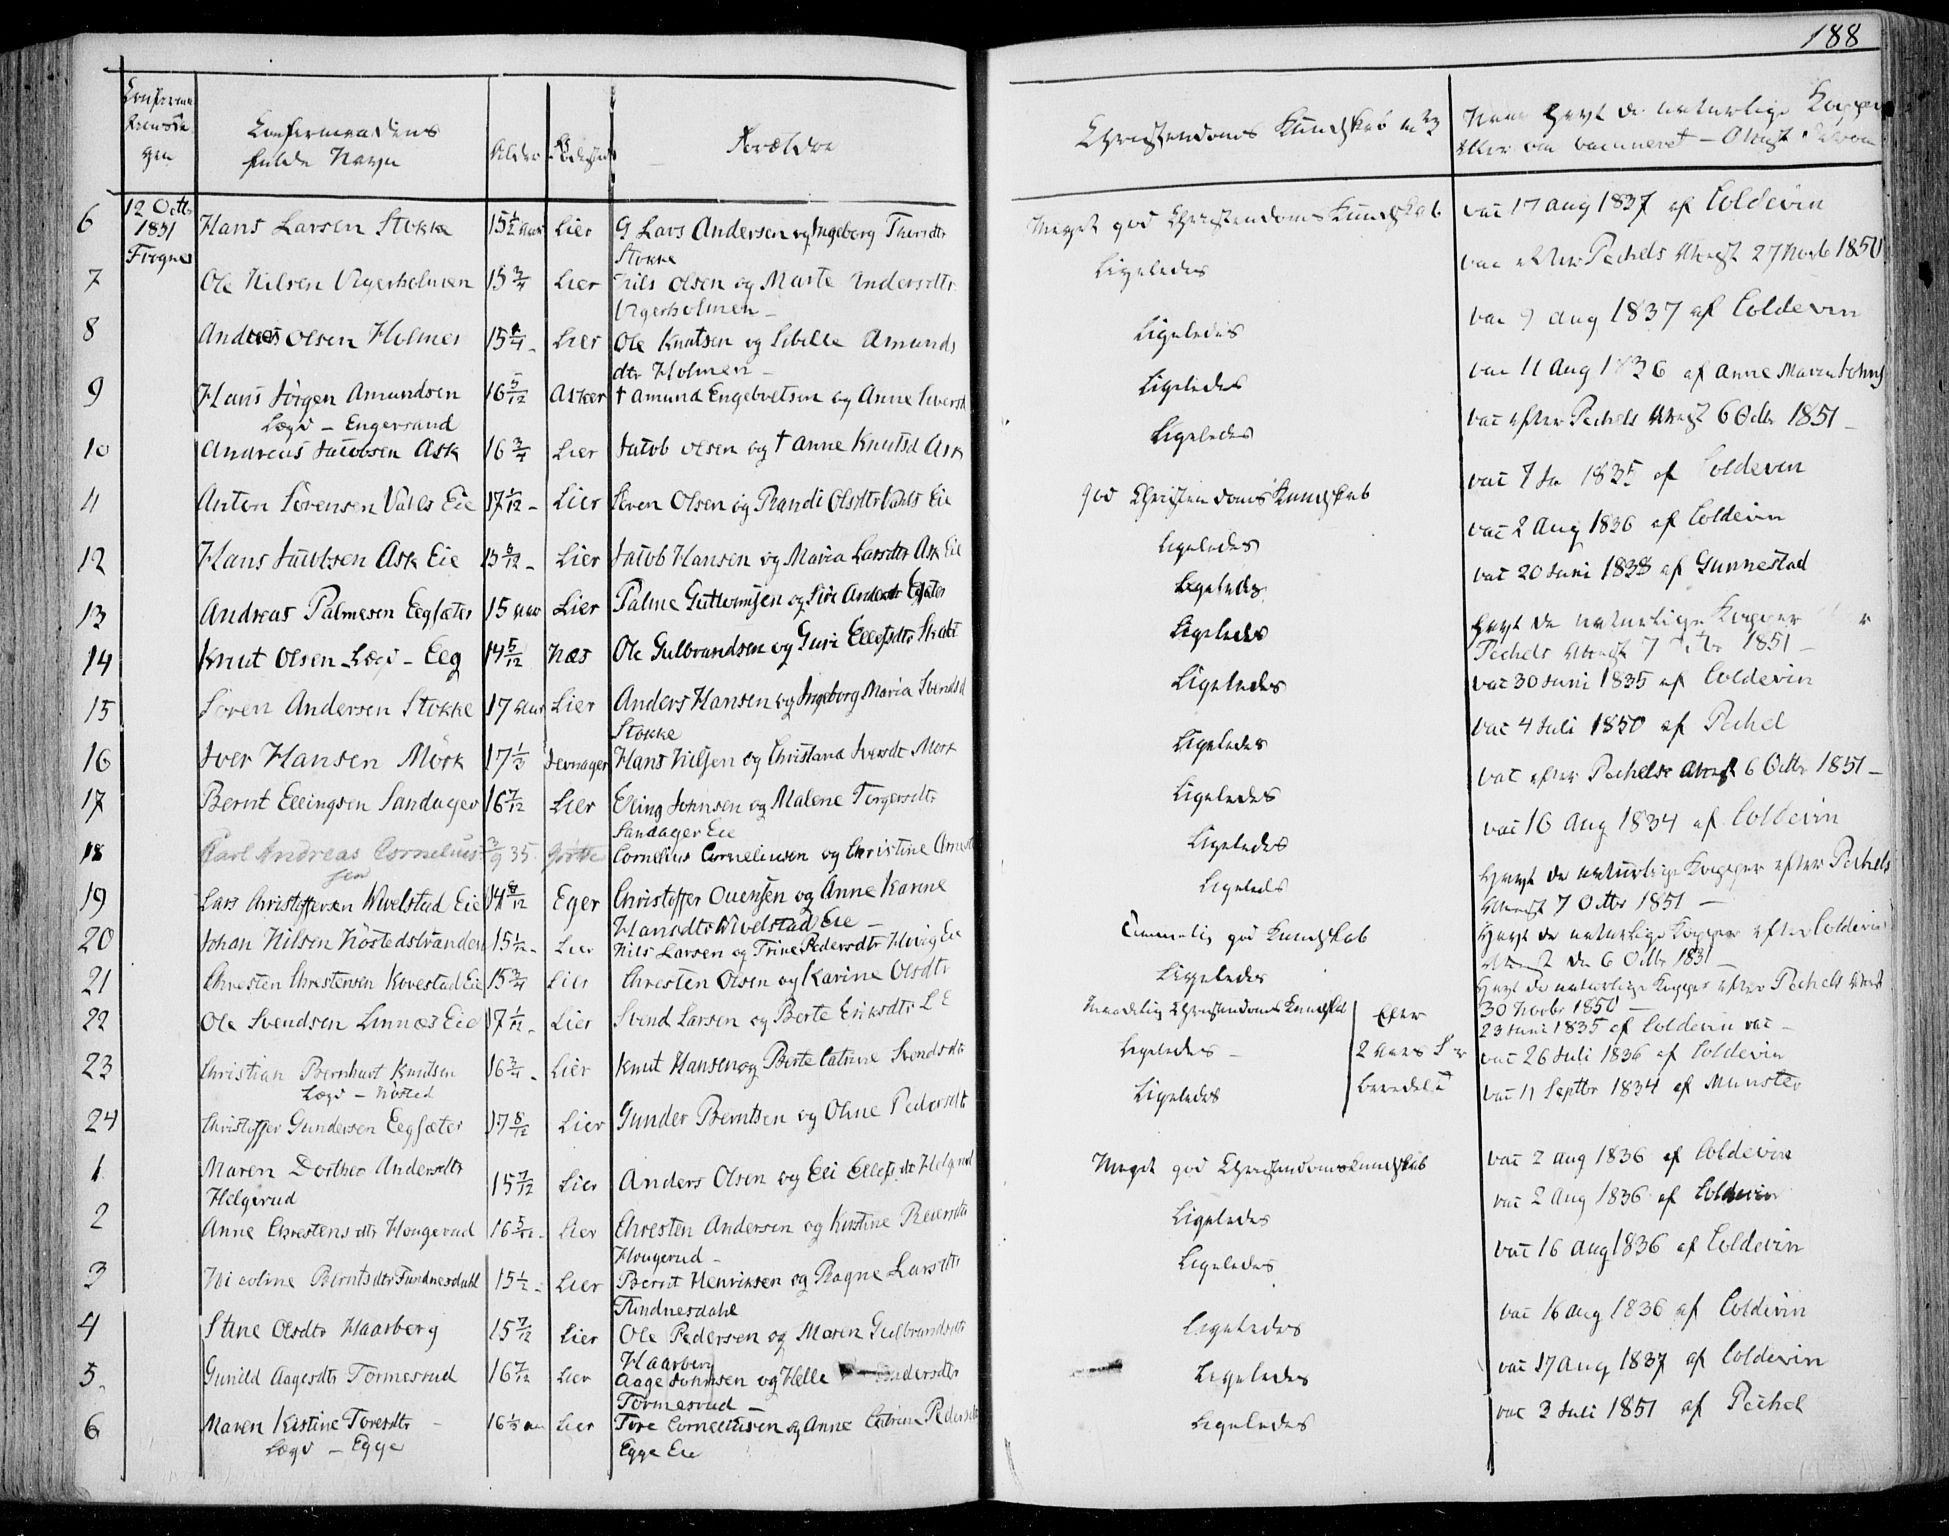 188
Confirma
tionsda
gen
Confirmandens
fulde Navn
Alder
Fødested
Forældre
Christendoms Kundskab
Naar havt de naturlige Kopper
eller er vaccineret
6 12 Octbr 1851 Frogner Hans Larsen Stokke 15 1/2 Aar Lier G Lars Andersen og Ingeborg Thorsdtr
Stokke
Meget god Christendoms Kundskab vac 17 Aug 1837 af Coldevin
7 Ole Nilsen Vigerholmen 15 3/4 Lier Nils Olsen og Marte Andersdtr
Vigerholmen
Ligeledes vac efter Pechels Attest 27 Novb 1850
8 Andreas Olsen Holmen 15 1/4 Lier Ole Knutsen og Sibille Amunds
dtr Holmen
Ligeledes vac 9 Aug 1837 af Coldevin
9 Hans Jörgen Amundsen 16 5/12 Asker † Amund Engebretsen og Anne Iversd
Lægd – Engersand
Ligeledes vac 11 Aug 1836 af Anne Maren
10 Andreas Jacobsen Ask 16 3/4 Lier Jacob Olsen og † Anne Knutsd Ask
Ligeledes vac efter Pechels Attest 6 Octbr 1851
11 Anton Sörensen Valls Eie 17 1/12 Lier Sören Olsen og Randi Olsdtr Valls Eie
god Christendoms Kundskab vac 7 1835 af Coldevin
12 Hans Jacobsen Ask Eie Lier Jacob Hansen og Maria Larsdtr Ask Eie
Ligeledes vac 2 Aug 1836 af Coldevin
13 Andreas Palmesen Eegsæter 15 Aar Lier Palme Guttormsen og Siri Andersdtr Egsæter
Ligeledes vac 20 Juni 1838 af Gunnestad
14 Knut Olsen Lægd – Eeg 14 5/12 Næs Ole Gulbrandsen og Guri Ellefsdtr
Ligeledes Havt de naturlige Kopper
Pechels Attest 7 1851
15 Sören Andersen Stokke 17 Aar Lier Anders Hansen og Ingeborg Maria Svendsd
Stokke
Ligeledes vac 30 Juni 1835 af Coldevin
16 Iver Hansen Mörk 17 1/3 Jevnager Hans Nilsen og Christiana Iversdt Mörk
Ligeledes vac 4 Juli 1850 af Pechel
17 Bernt Ellingsen Sandager 16 7/12 Lier Elling Johnsen og Malene Torgersdtr
Sandager Eie
Ligeledes vac efter Pechels Attest 6 Octbr 1851
18 Karl Andreas Cornelius 3/9 35 Cornelius Corneliusen og Christine
sen
Ligeledes vac 16 Aug 1834 af Coldevin
19 Lars Christoffersen Wivelstad Eie Eger Christoffer Ovensen og Anne Karine
Hansdtr Wivelstad Eie
Ligeleds Havt de naturlige Kopper efter Pechels
Attest 7 Octbr 1851
20 Johan Nilsen Nöstedstranden 15 1/2 Lier Nils Larsen og Trine Pedersdtr Hovig Eie
Temmelig god Kundskab Havt de naturlige Kopper efter Coldevins
Attest de 6 Octbr
21 Chresten Chrestensen Kovestad Eie 15 3/4 Lier Chresten Olsen og Karine Olsdtr
Ligeledes Havt de naturlige Kopper efter Pechels Attest
30 Novbr 1850
22 Ole Svendsen Linnæs Eie 17 1/12 Lier Svend Larsen og Berte Eriksdtr L E
Maadelig Christendoms Kundskab Efter 23 Juni 1835 af Coldevin vac
23 Christian Bernhart Knutsen 16 3/4 Lier Knut Hansen og Berte Catrine Svendsdtr
Lægd – Nösted
Ligeledes 2 Aars vac 26 Juli 1836 af Coldevin
24 Christoffer Gundersen Eegsæter 17 8/12 Lier Gunder Berntsen og Oline Pedersdtr
Ligeledes vac 11 Septbr 1834 af Munster
1 Maren Dorthea Andersdtr 15 7/12 Lier Anders Olsen og Eli Ellefsdtr Helgerud
Helgerud
Meget god Christendoms Kundskab vac 2 Aug 1836 af Coldevin
2 Anne Chrestensdtr Hougerud 16 5/12 Lier Chresten Andersen og Kirstine Reiersdtr
Hougerud
Ligeledes vac 2 Aug 1836 af Coldevin
3 Nicoline Berntsdtr Tundnesdahl 15 1/2 Lier Bernt Henriksen og Ragne Larsdtr
Tundnesdahl
Ligeledes vac 16 Aug 1836 af Coldevin
4 Stine Olsdtr Haarberg 15 7/12 Lier Ole Pedersen og Maren Gulbrandsdtr
Haarberg
Ligeledes vac 16 Aug 1836 af Coldevin
5 Gunild Aagesdtr Tormesrud 16 7/12 Lier Aage Johnsen og Helle Andersdtr
Tormesrud
Ligeledes vac 17 Aug 1837 af Coldevin
6 Maren Kirstine Toresdtr 16 1/3 Aar Lier Tore Corneliusen og Anne Catrine Pedersdtr
Lægd – Egge
Egge Eie
Ligeledes vac 3 Juli 1851 af Pechel